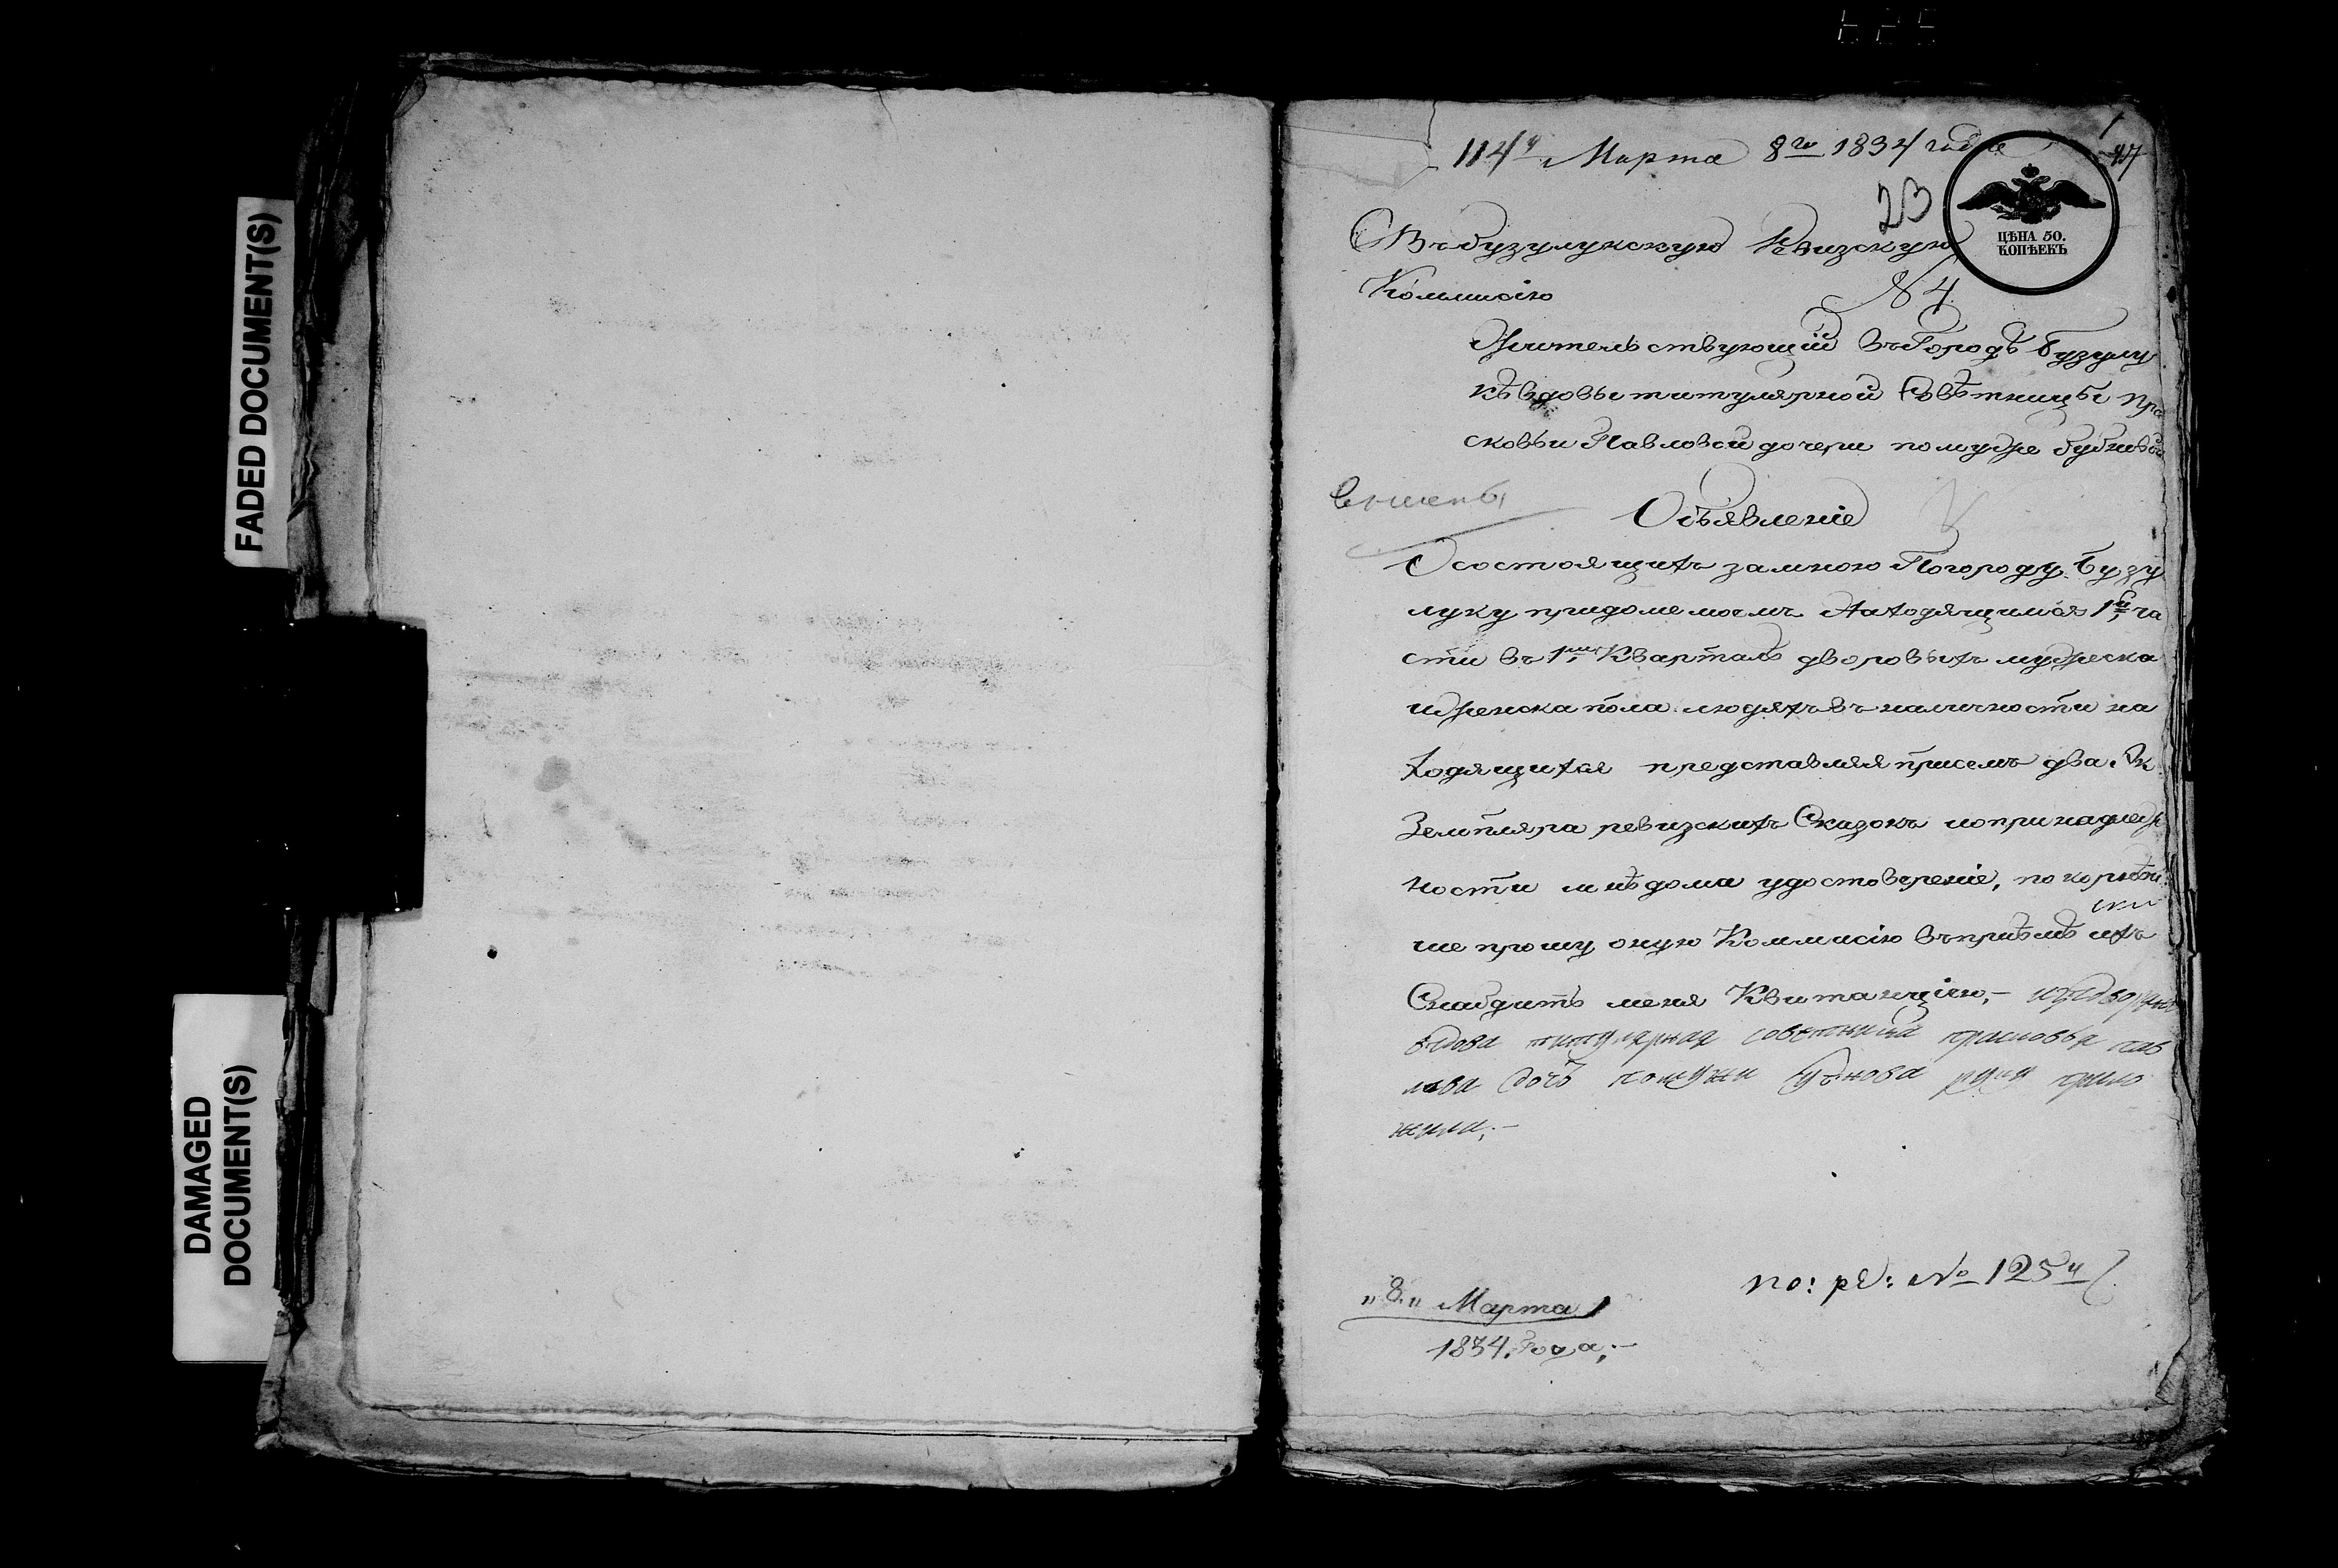 FADED DOCUMENT(S)
DAMAGED
DOCUMENT(S)
114й Марта 8го 1834 года
23
ЦѢНА 50.
КОПѢЕКЪ
Въ бузулукскую Ревизскую
Коммисію
№ 4
Жительствующій въ Городѣ Бузулу
кѣ вдовы титулярной Совѣтницы Пра
сковьи Павловой дочери по муже
Объявленіе
О состоящихъ за мною По городу Бузу
луку при доме моемъ Находящимся 1й ча
сти въ 1мъ Кварталѣ дворовыхъ мужеска
и женска пола людяхъ въ наличности на
ходящихся представляя при семъ два Эк
земпляра ревизскихъ Сказокъ и о принадлеж
ности мнѣ дома удостовереніе, покорнѣй
ше прошу оную Коммисію въ пріѣмѣ ихъ
Снабдить меня Квитанціею,-
вдова титулярная советница прасковья пав
лова дочь по мужи руку прило
жила,-
по: ре: № 125й
"8" Марта
1834. Года;-